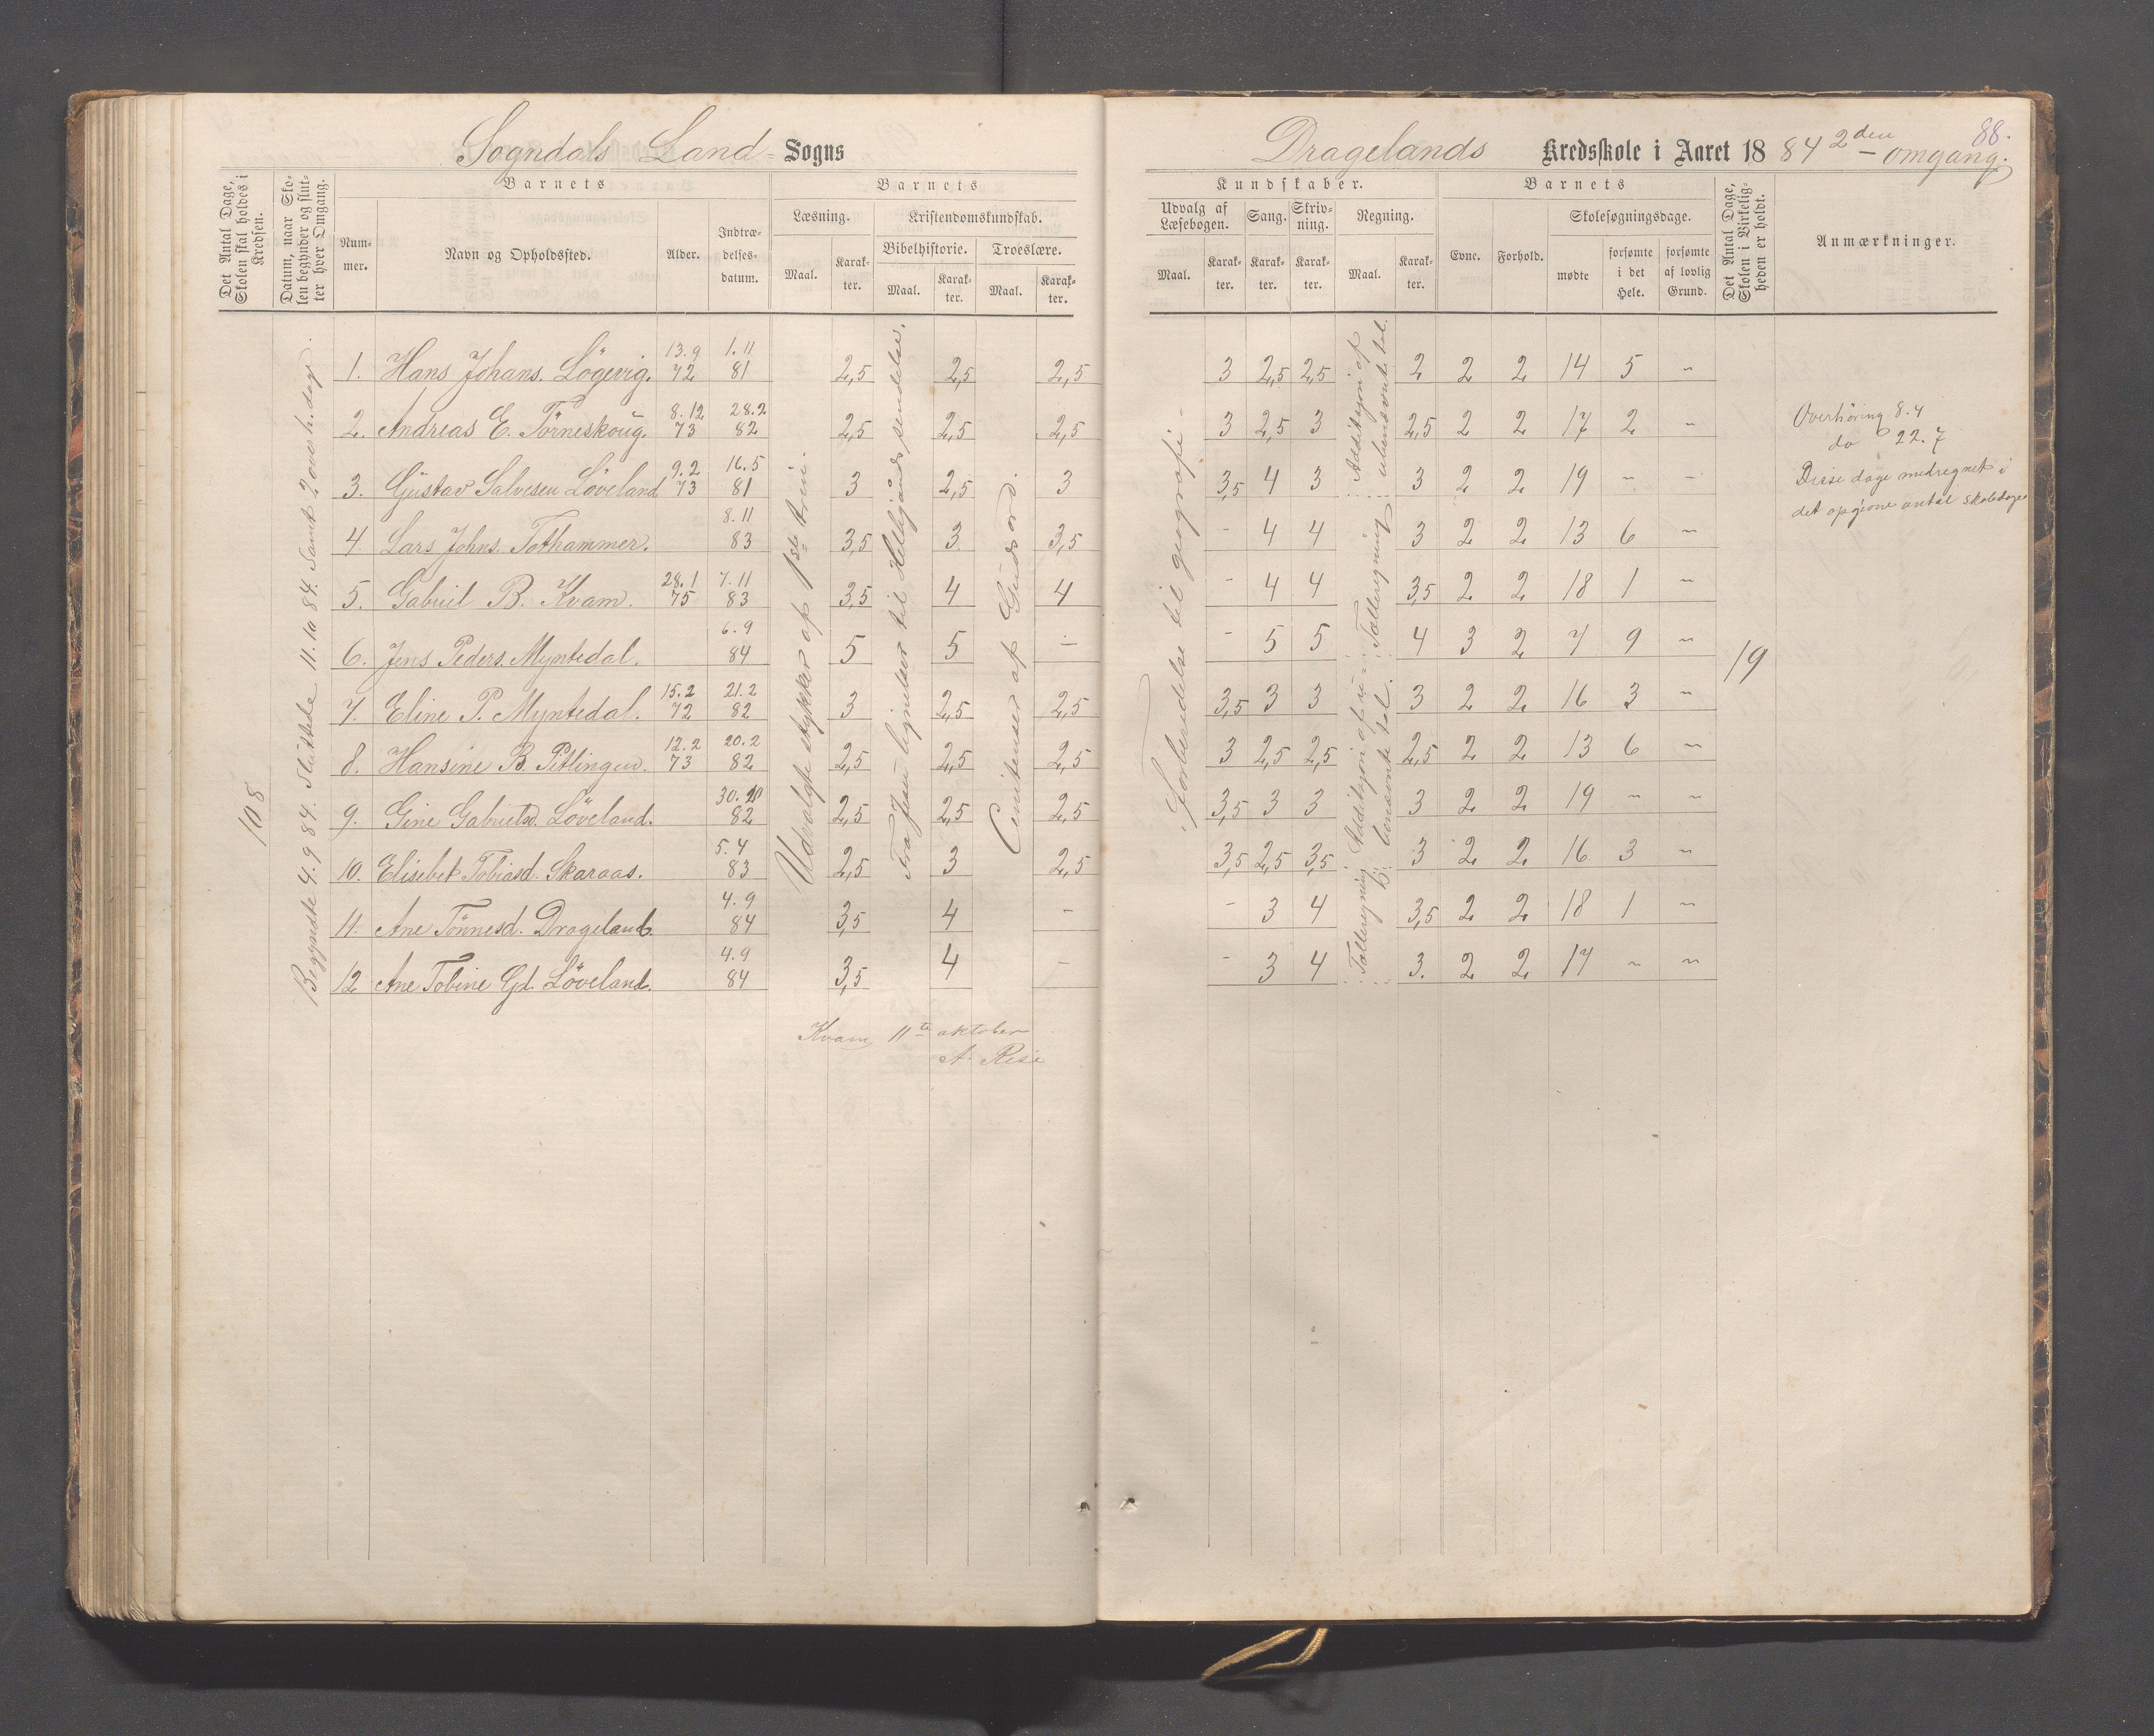 Sogndals Land- Sogns
Dragelands Kredsskole i Aaret 1884 2den omgang.
88.
Det Antal Dage, Skolen skal holdes i Kredsen.
Datum, naar Skolen begynder og slutter hver Omgang.
Barnets
Nummer.
Navn og Opholdssted.
Alder.
Indtrædelsesdatum.
Barnets
Læsning.
Maal.
Karakter.
Kristendomskundskab.
Bibelhistorie.
Maal.
Karakter.
Troeslære.
Maal.
Karakter.
Kundskaber.
Udvalg af Læsebogen.
Maal.
Karakter.
Sang.
Karakter.
Skrivning.
Karakter.
Regning.
Maal.
Karakter.
Barnets
Evne.
Forhold.
Skolesøgningsdage.
mødte
forsømte i det Hele.
forsømte af lovlig Grund.
Det Antal Dage, Skolen i Virkeligheden er holdt.
Anmærkninger.
108
Begyndte 4.9 84. Sluttede 11.10 84. Samt 2 overh. dage.
Udvalgte stykker af 1ste trin.
Fra Jesu lignelser til Helligåndsudsendelse.
Af Guds ord.
Forberedelse til geografi.
Tallregning Addisjon af ubenævnte tal.
19
1. Hans Johans. Lögevig. 13.9 72 1.11 81 2,5 2,5 2,5 3 2,5 2,5 2 2 2 14 5 "
2. Andreas E. Törneskoug. 8.12 73 28.2 82 2,5 2,5 2,5 3 2,5 3 2,5 2 2 17 2 "
3. Gustav Salvesen Löveland 9.2 73 16.5 81 3 2,5 3 3,5 4 3 3 2 2 19 " "
4. Lars Johns. Tothammer. 8.11 83 3,5 3 3,5 - 4 4 3 2 2 13 6 "
5. Gabriel B. Kvam. 28.1 75 7.11 83 3,5 4 4 - 4 4 3,5 2 2 18 1 "
6. Jens Peders. Myntedal. 6.9 84 5 5 - - 5 5 4 3 2 7 9 "
7. Eline P. Myntedal. 15.2 72 21.2 82 3 2,5 2,5 3,5 3 3 3 2 2 16 3 "
8. Hansine B. Pitlingen. 12.2 73 20.2 82 2,5 2,5 2,5 3 2,5 2,5 2,5 2 2 13 6 "
9. Gine Gabrielsd. Löveland. 30.10 82 2,5 2,5 2,5 3,5 3 3 3 2 2 19 " "
10. Elisebet Tobiasd. Skaraas. 5.4 83 2,5 3 2,5 3,5 2,5 3,5 3 2 2 16 3 "
11. Ane Tönnesd. Drageland. 4.9 84 3,5 4 - - 3 4 3,5 2 2 18 1 "
12 Ane Tobine Gd. Löveland. 4.9 84 3,5 4 - - 3 4 3. 2 2 17 " "
Overhöring 8.4
do 22.7
Disse dage medregnet i
det opgivne antal skoledage
Kvam 11te oktober
A. Rise